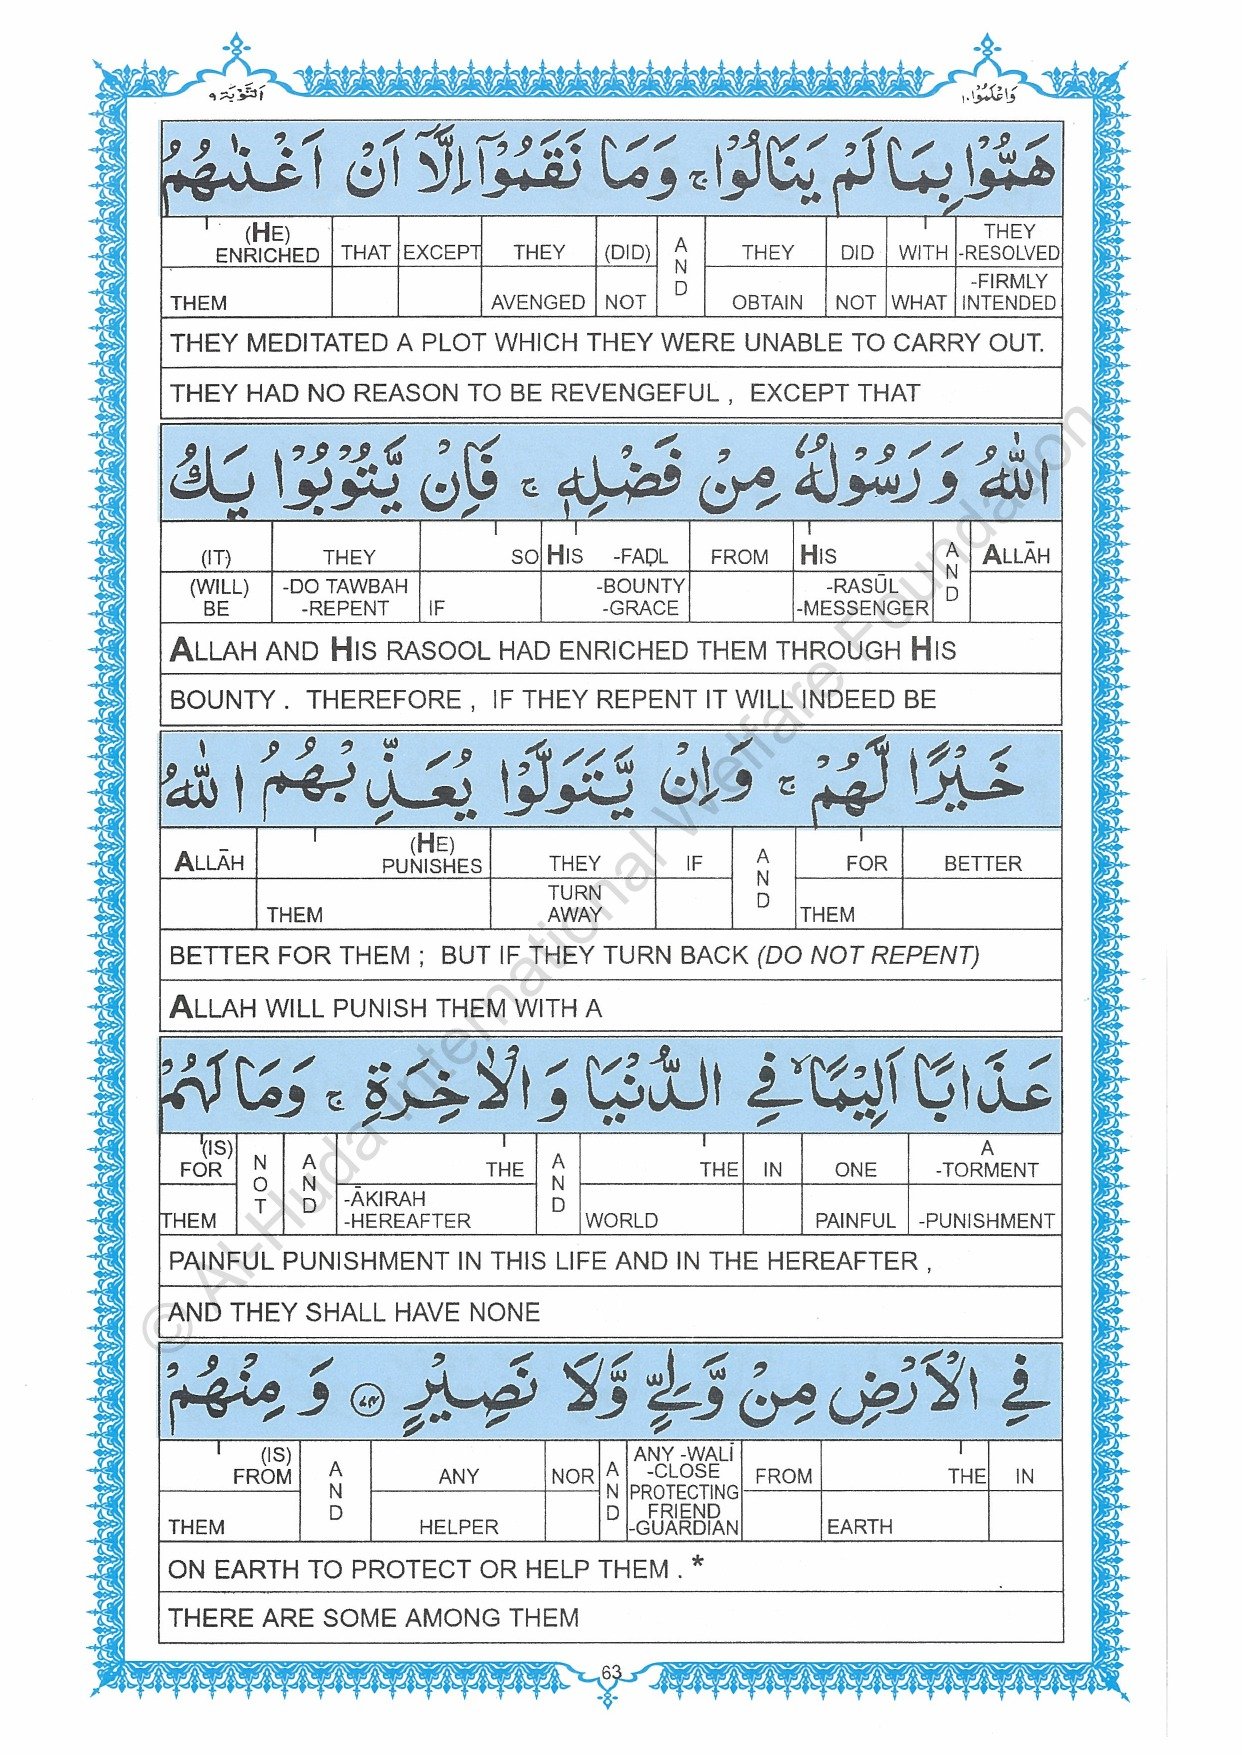 اَلتَّوْبَة ٩
وَاعْلَمُوْٓا ١٠
هَمُّوْا بِمَا لَمْ يَنَالُوْا ۚ وَمَا نَقَمُوْٓا اِلَّآ اَنْ اَغْنٰىهُمُ
(HE) THEY
ENRICHED THAT EXCEPT THEY (DID) AND THEY DID WITH -RESOLVED
-FIRMLY
THEM AVENGED NOT OBTAIN NOT WHAT INTENDED
THEY MEDITATED A PLOT WHICH THEY WERE UNABLE TO CARRY OUT.
THEY HAD NO REASON TO BE REVENGEFUL , EXCEPT THAT
اللّٰهُ وَ رَسُوْلُهٗ مِنْ فَضْلِهٖ ۚ فَاِنْ يَّتُوْبُوْا يَكُ
(IT) THEY SO HIS -FAḌL FROM HIS AND ALLĀH
(WILL) -DO TAWBAH -BOUNTY -RASŪL
BE -REPENT IF -GRACE -MESSENGER
ALLAH AND HIS RASOOL HAD ENRICHED THEM THROUGH HIS
BOUNTY . THEREFORE , IF THEY REPENT IT WILL INDEED BE
خَيْرًا لَّهُمْ ۚ وَاِنْ يَّتَوَلَّوْا يُعَذِّبْهُمُ اللّٰهُ
(HE)
ALLĀH PUNISHES THEY IF AND FOR BETTER
TURN
THEM AWAY THEM
BETTER FOR THEM ; BUT IF THEY TURN BACK (DO NOT REPENT)
ALLAH WILL PUNISH THEM WITH A
عَذَابًا اَلِيْمًا ۙ فِي الدُّنْيَا وَ الْاٰخِرَةِ ۚ وَمَا لَهُمْ
(IS) A
FOR NOT AND THE AND THE IN ONE -TORMENT
-ĀKIRAH
THEM -HEREAFTER WORLD PAINFUL -PUNISHMENT
PAINFUL PUNISHMENT IN THIS LIFE AND IN THE HEREAFTER ,
AND THEY SHALL HAVE NONE
فِي الْاَرْضِ مِنْ وَّلِيٍّ وَّلَا نَصِيْرٍ ﴿٧٤﴾ وَ مِنْهُمْ
(IS) ANY -WALĪ
FROM AND ANY NOR AND -CLOSE FROM THE IN
PROTECTING
FRIEND
THEM HELPER -GUARDIAN EARTH
ON EARTH TO PROTECT OR HELP THEM . *
THERE ARE SOME AMONG THEM
63
© Al-Huda International Welfare Foundation